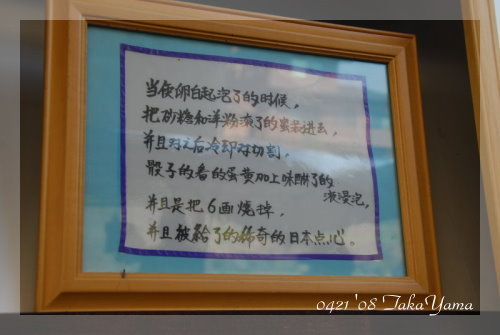 当使卵白起泡了的时候，
把砂糖和洋粉滚了的蜜若进去，
并且对之后冷却对切割，
骰子的看的蛋黄加上味酣了的
液浸泡，
并且是把6画烧掉，
并且被给了的稀奇的日本点心。
0421'08 TakaYama